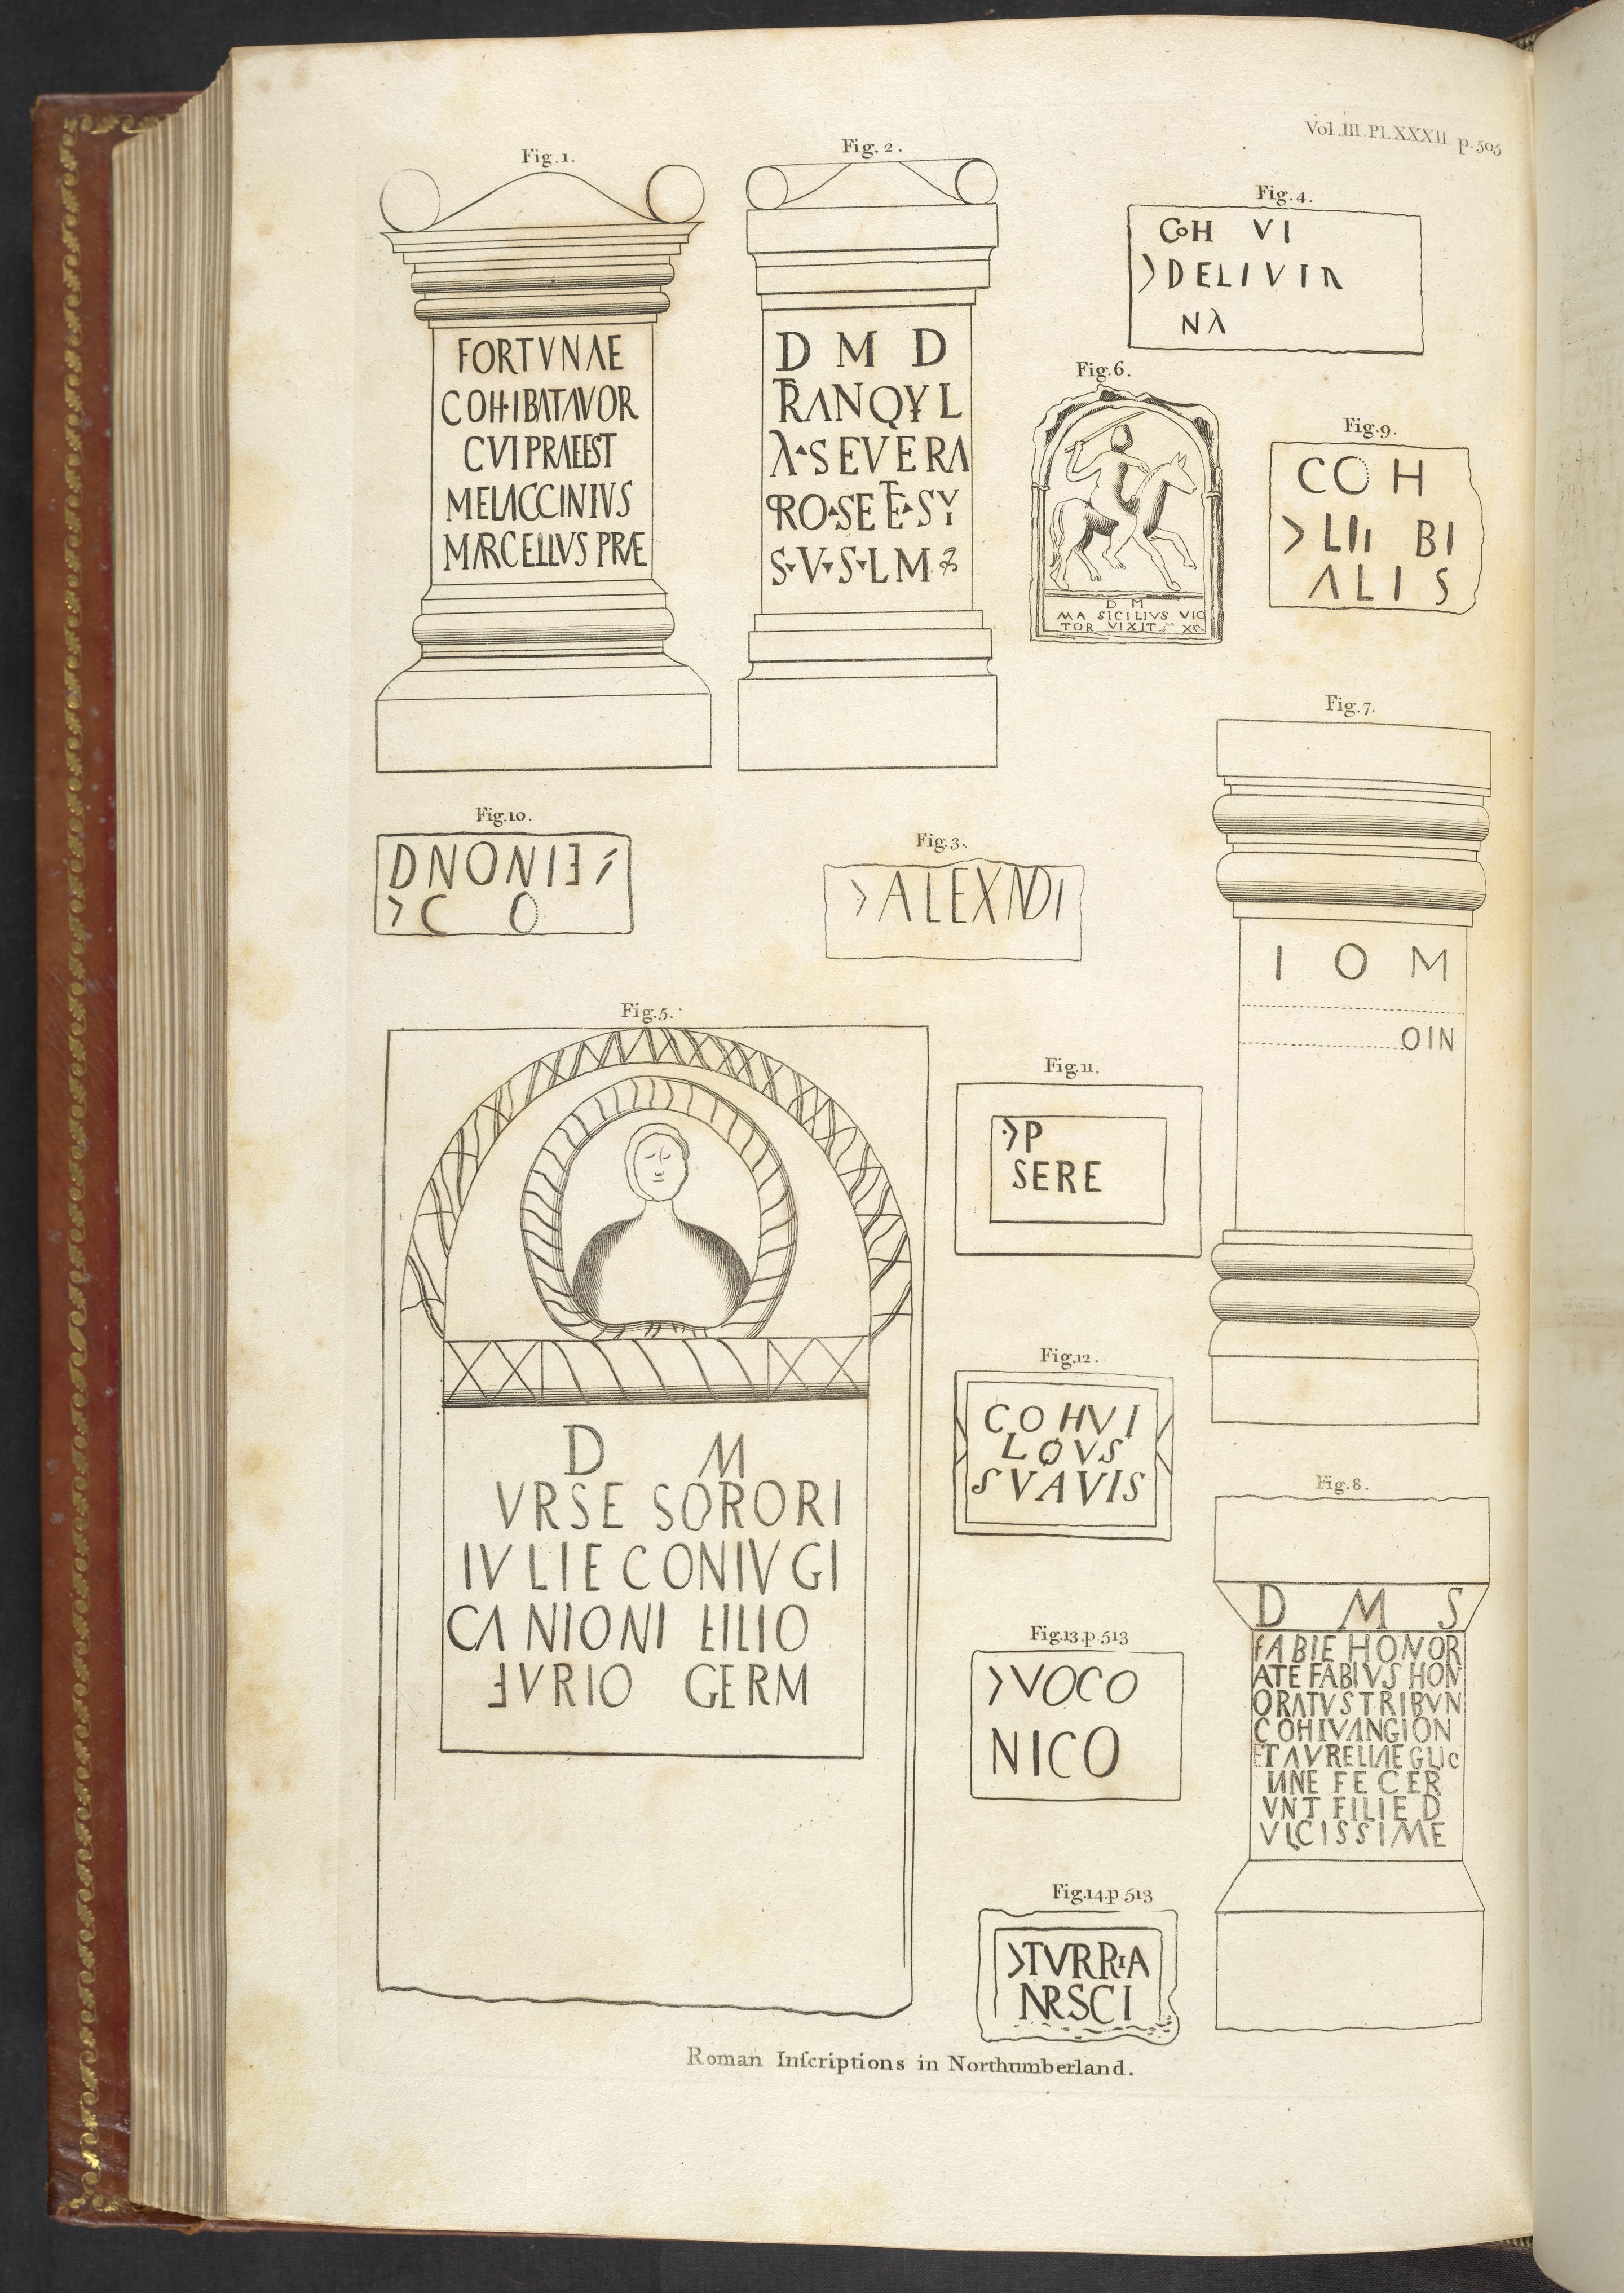 Vol.III.Pl.XXXII p.505
Fig.1.
FORTVNAE
COH·I BATAVOR
CVI PRAEEST
MELACCINIVS
MARCELLVS PRÆ
Fig.2.
D M D
TRANQVL
A SEVERA
PRO SE ET SV
S V S L M
Fig.4.
CoH VI
>DELIVIR
NA
Fig.6.
D M
MA SICILIVS VIC
TOR VIXIT
Fig.9.
COH
>LII BI
ALIS
Fig.7.
I O M
OIN
Fig.10.
DNONIƎ
>C O
Fig.3.
>ALEXNDI
Fig.5.
D M
VRSE SORORI
IVLIE CONIVGI
CANIONI FILIO
ƎVRIO GERM
Fig.11.
>P
SERE
Fig.12.
COHVI
LOVS
SVAVIS
Fig.13.p 513
>VOCO
NICO
Fig.8.
D M S
FABIE HONOR
ATE FABIVS HON
ORATVS TRIBVN
COHIVANGION
ET AVRELIAE GLIC
IANE FECER
VNT FILIE D
VLCISSIME
Fig.14.p 513
>TVRRIA
NRSCI
Roman Inſcriptions in Northumberland.